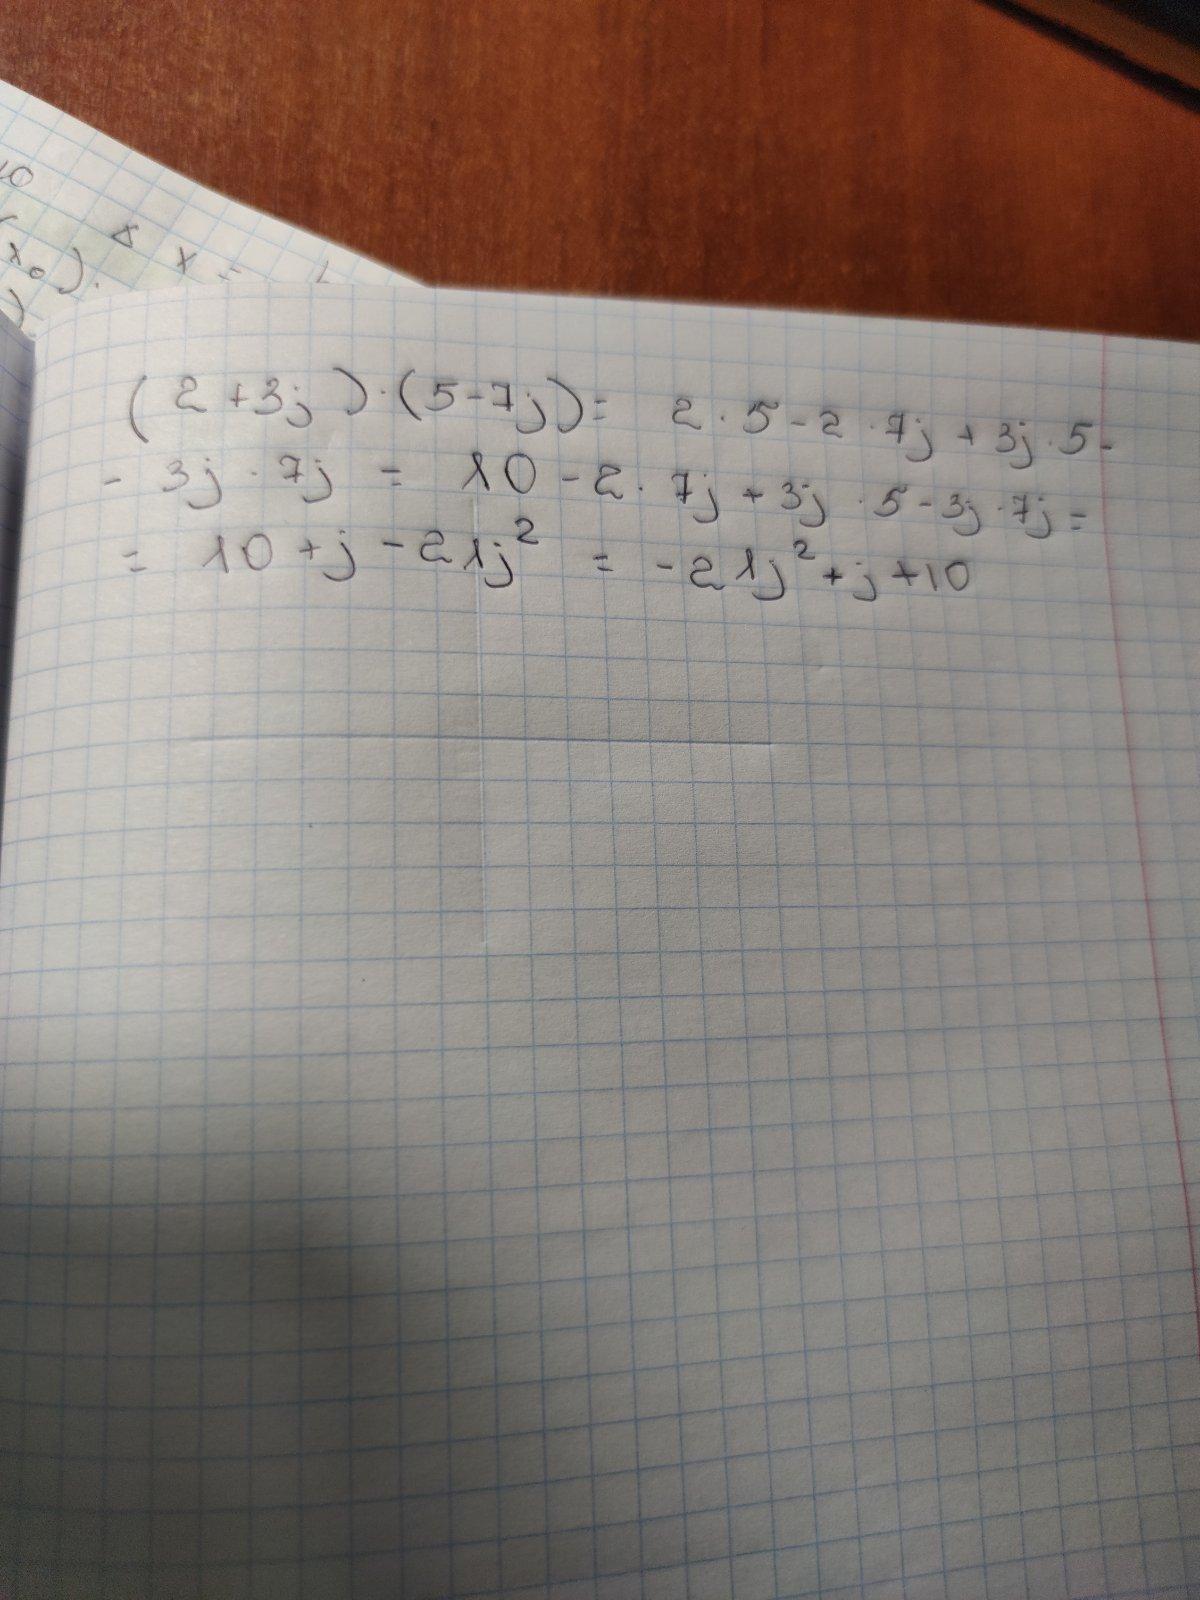 10
x₀). x x =
(2+3j)·(5-7j)= 2·5-2·7j+3j·5-
- 3j·7j = 10-2·7j+3j·5-3j·7j=
= 10+j-21j² = -21j²+j+10